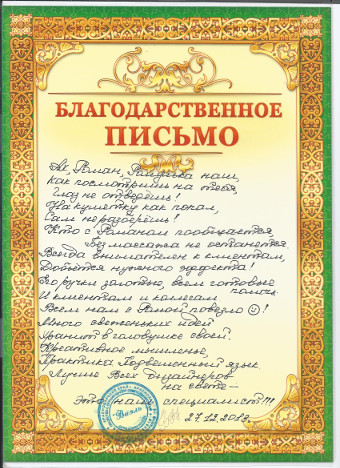 БЛАГОДАРСТВЕННОЕ
ПИСЬМО
Ах, Роман, наш,
Как посмотришь на тебя,
Глаз не отведёшь!
На кушетку как попал,
Сам не разберёшь!
Кто с Романом пообщается
Без массажа не останется.
Всегда внимателен к клиентам,
Добьётся нужного эффекта!
Его ручки золотые, всем готовые помочь.
И клиентам и коллегам
Всем нам с Ромой повезло!
Много свеженьких идей
Хранит в головушке своей.
Креативное мышление,
Практика, язык
Лучше Всех на свете —
это наш специалист!!!
27.12.2018г.